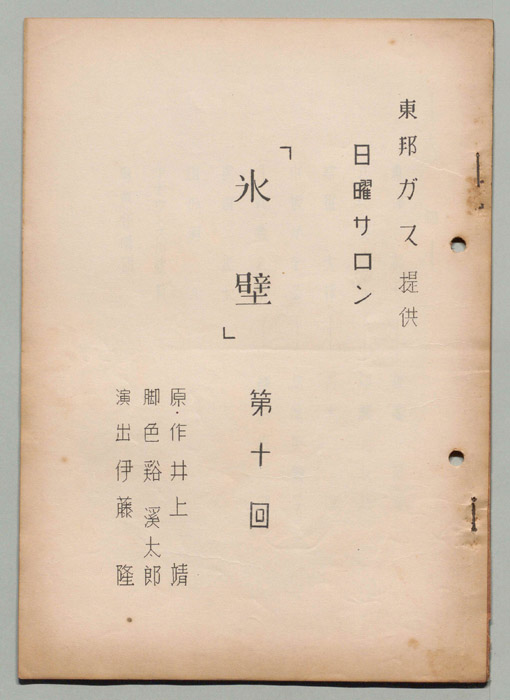 東邦ガス提供
日曜サロン
「氷壁」第十回
原・作井上靖
脚色谿渓太郎
演出伊藤隆